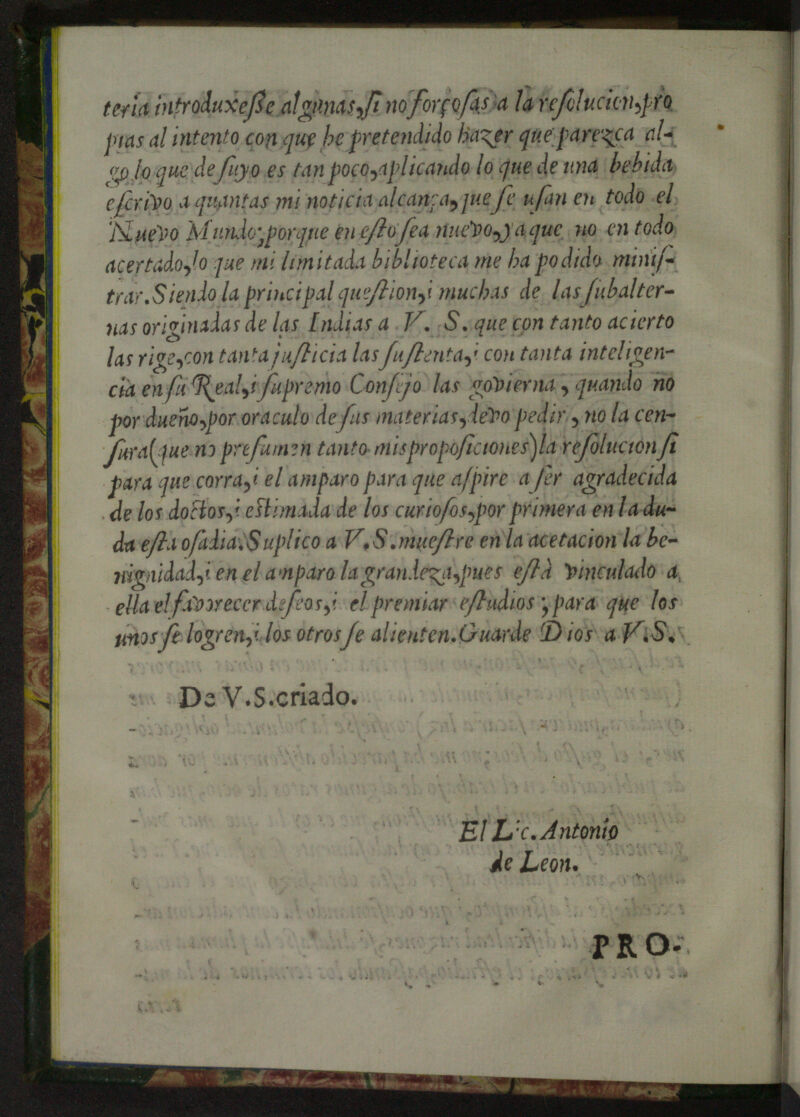 teria introduxesse algunas, si no forçosas a la resolucion, pro
pias al intento con que he pretendido hazer que parezca al-
go lo que de suyo es tan poco, aplicando lo que de una bebida
escrivo a quantas mi noticia alcança, que se usan en todo el
Nuevo Mundo; porque en esto sea nuevo, ya que no en todo
acertado, lo que mi limitada biblioteca me ha podido minis-
trar. Siendo la principal question, i muchas de las subalter-
nas originadas de las Indias a V. S. que con tanto acierto
las rige, con tanta justicia las sustenta, i con tanta inteligen-
cia en su Real, i supremo Consejo las govierna, quando no
por dueño, por oraculo de sus materias, devo pedir, no la cen-
sura (que no presumen tanto mis proposiciones) la resolucion si
para que corra, i el amparo para que aspire a ser agradecida
de los doctos, i estimada de los curiosos, por primera en la du-
da esta osadia. Suplico a V. S. muestre en la acetacion la be-
nignidad, i en el amparo la grandeza, pues està vinculado a
ella el favorecer deseos, i el premiar estudios; para que los
unos se logren, i los otros se alienten. Guarde Dios a V. S.
De V. S. criado.
El Lic. Antonio
de Leon.
PRO-